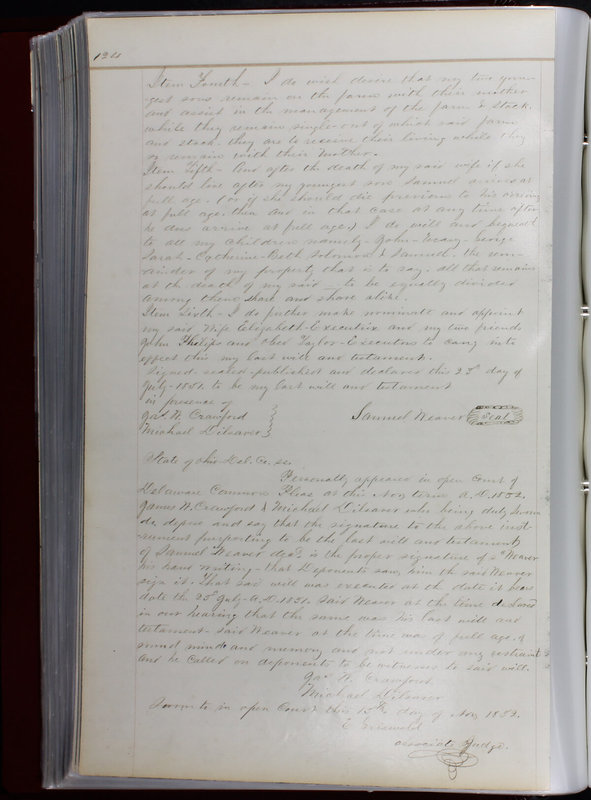 Item Fourth - I do wish desire that my two youn-
gest sons remain on the farm with their mother
and assist in the management of the farm & stock.
while they remain single - out of which said farm
and stock. they are to receive their living while they
so remain with their Mother.
Item Fifth - And after the death of my said wife if she
should live after my youngest son Samuel arrives at
full age. (or if she should die previous to his arriving
at full age. then and in that case at any time after
he does arrive at full age.) I do will and bequeath
to all my children namely - John - George
Sarah - Catherine - Beth Solomon & Samuel. the rem-
ainder of my property that is to say. all that remains
at the death of my said to be equally divided
among them share and share alike.
Item Sixth - I do further make nominate and appoint
my said Wife Elizabeth - Executrix and my two friends
John Philips and Obed Taylor - Executors to carry into
effect this my last will and testament.
Signed - sealed - published and declared this 23d day of
July - 1851. to be my last will and testament
in presence of
Jas. W. Crawford
Michael Dilsaver
Samuel Weaver Seal
State of Ohio Del. Co. ss.
Personally appeared in open Court of
Delaware Common Pleas at this Nov. term A.D. 1852.
James W. Crawford & Michael Dilsaver who being duly sworn
do, depose and say that the signature to the above inst-
rument purporting to be the last will and testament
of Samuel Weaver decd. is the proper signature of sd Weaver
his hand writing - that Deponents saw him the said Weaver
sign it. That said will was executed at the date it bears
date the 23d July - A.D. 1851. Said Weaver at the time declared
in our hearing that the same was his last will and
testament - Said Weaver at the time was of full age. of
sound mind and memory and not under any restraint
and he called on deponents to be witnesses to said will.
Jas. W. Crawford
Michael Dilsaver
Sworn to in open Court this 15th day of Nov. 1852.
E Griswold
associate Judge.